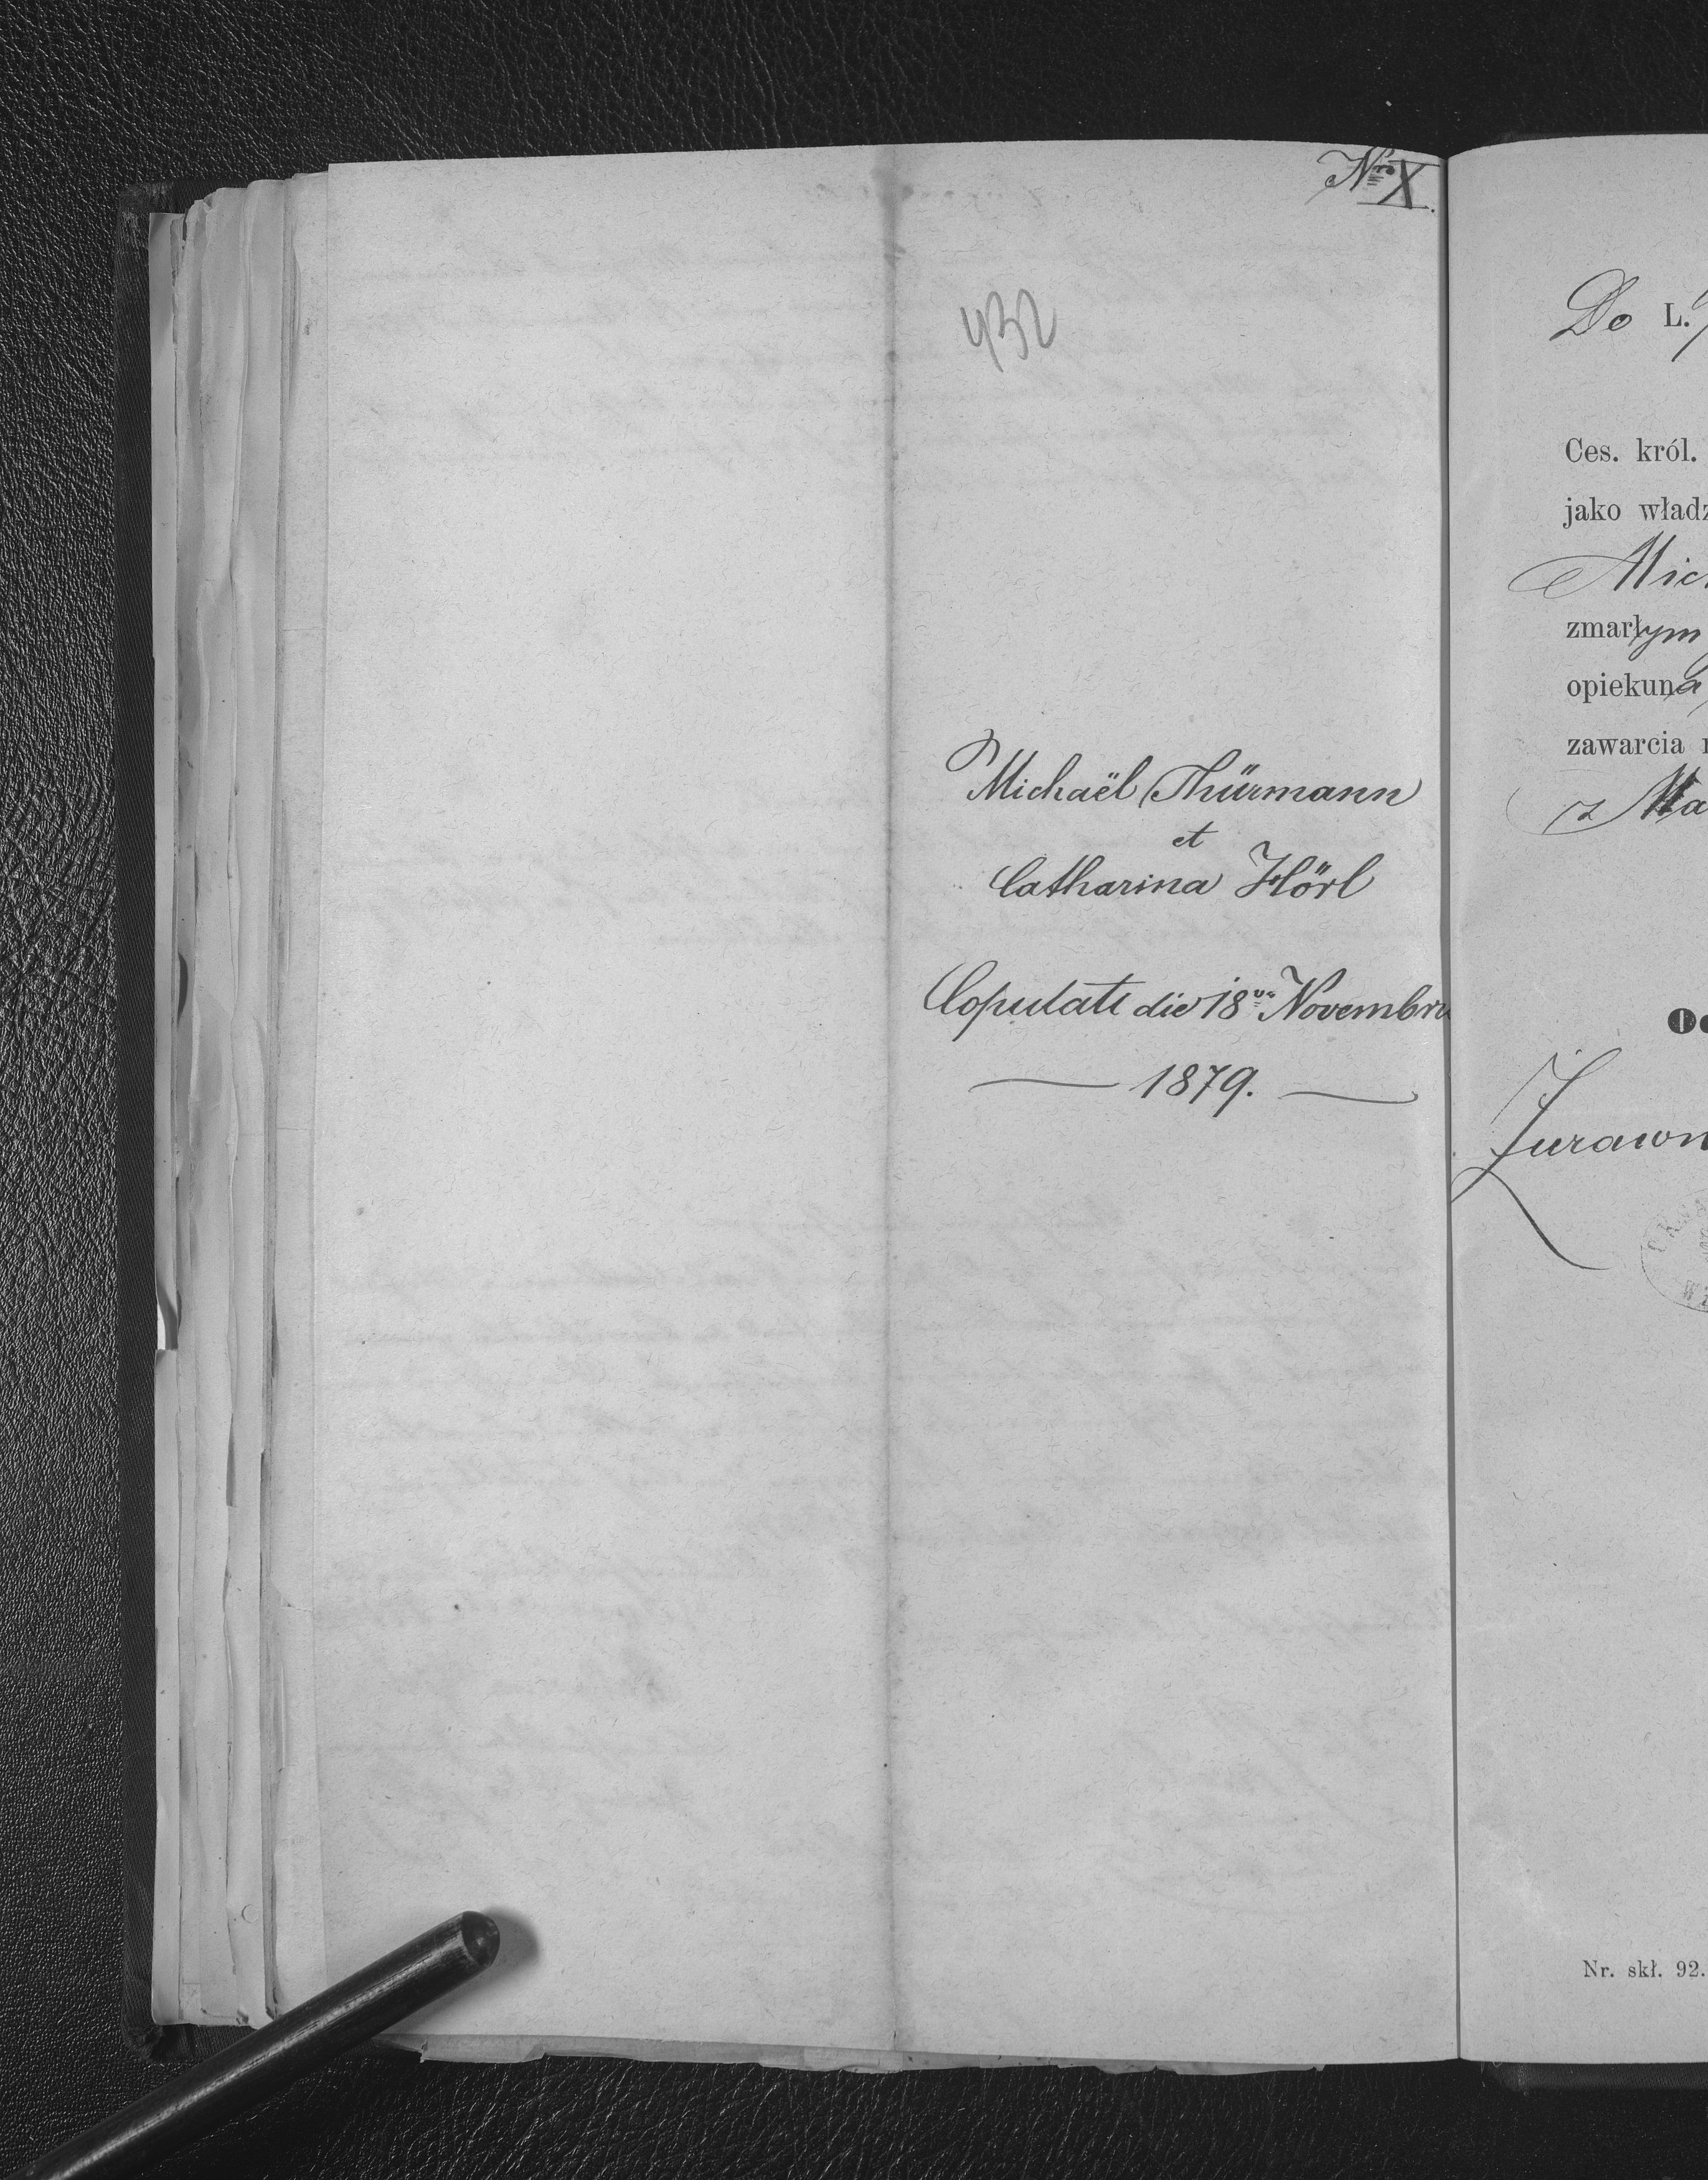 Nro X.
432
Michaël Thürmann
et
Catharina Hörl
Copulati die 18va Novembris
1879.
Do L.
Ces. król.
jako władz
Mich
zmarłym
opiekuna
zawarcia
z Ma
Żurawn
Nr. skł. 92.